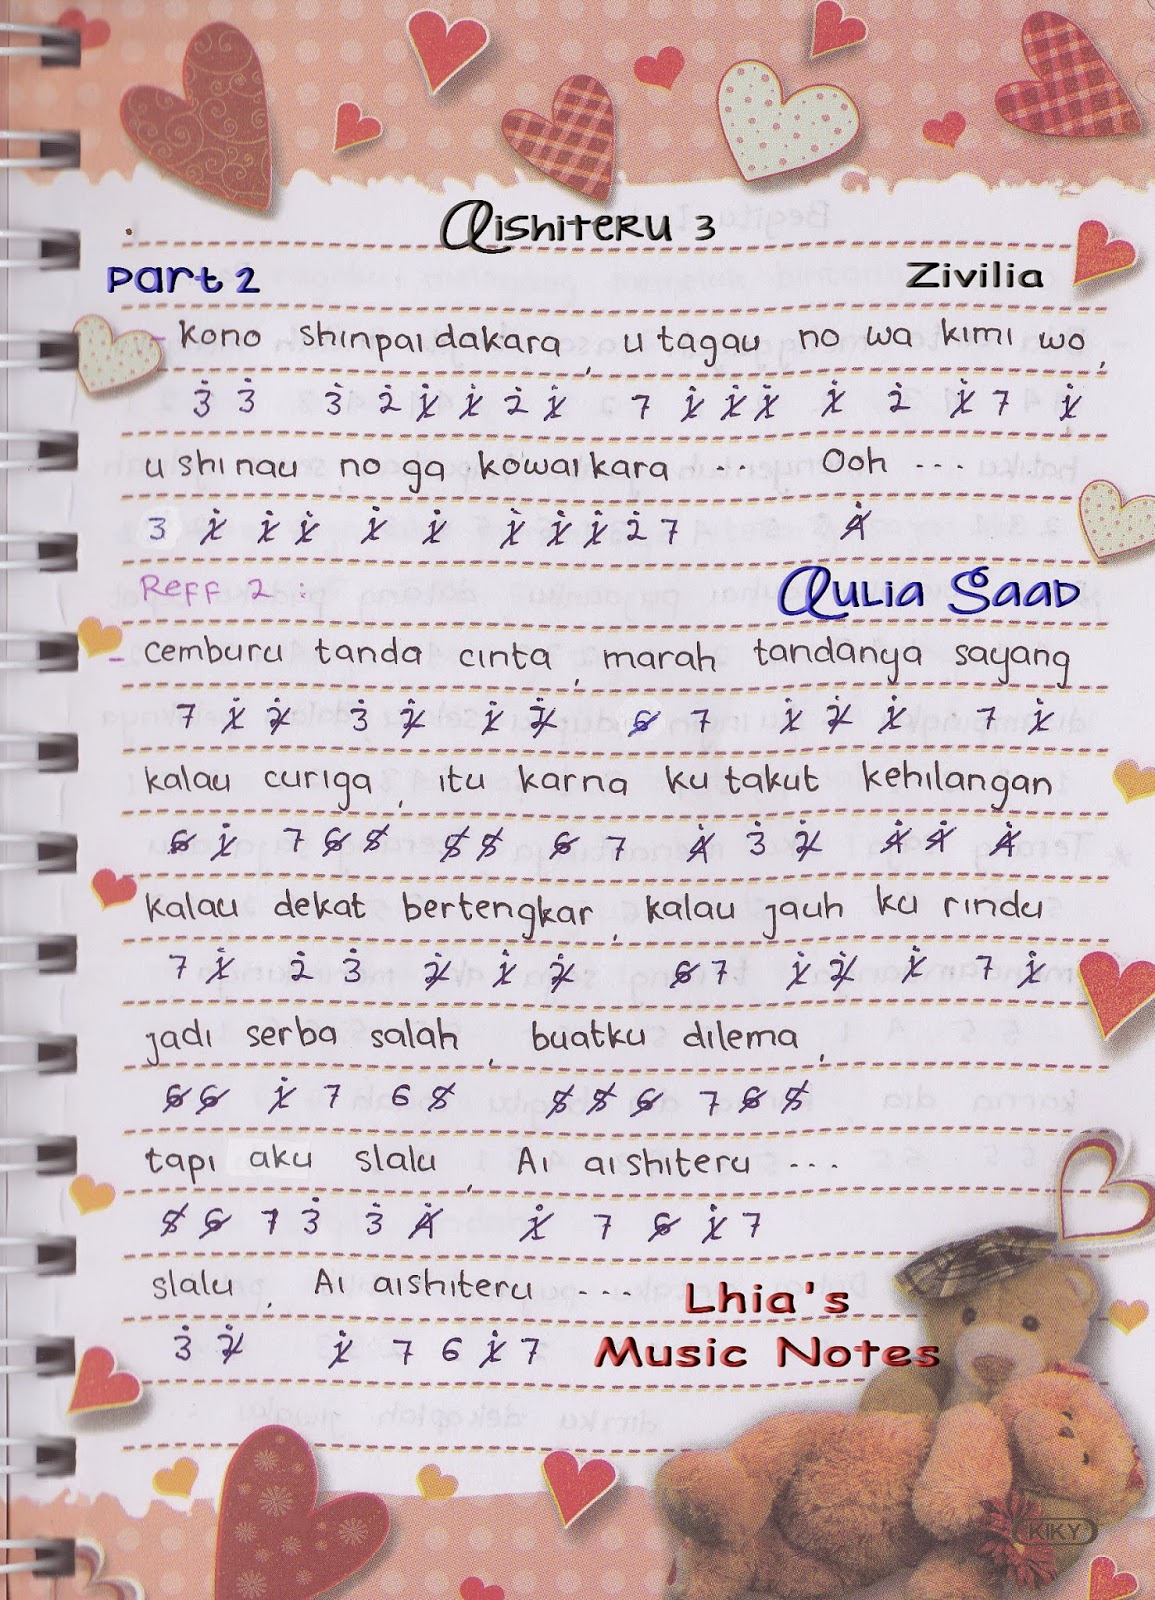 Aishiteru 3
Part 2 Zivilia
- kono shinpai dakara, utagau no wa kimi wo,
3 3 3 2 1 1 2 1 7 1 1 1 1 2 1 7 1
ushinau no ga kowaikara ... Ooh ...
3 1 1 1 1 1 1 1 1 2 7 4
Reff 2 :
Aulia Saad
- cemburu tanda cinta, marah tandanya sayang
7 1 2 3 2 1 2 6 7 1 2 1 7 1
kalau curiga, itu karna ku takut kehilangan
6 1 7 6 5 5 5 6 7 4 3 2 4 4 4
kalau dekat bertengkar, kalau jauh ku rindu
7 1 2 3 2 1 2 6 7 1 2 1 7 1
jadi serba salah, buatku dilema,
6 6 1 7 6 5 5 5 6 7 6 5
tapi aku slalu, Ai aishiteru ...
5 6 7 3 3 4 1 7 6 1 7
slalu, Ai aishiteru ...
3 2 1 7 6 1 7
Lhia's
Music Notes
KIKY